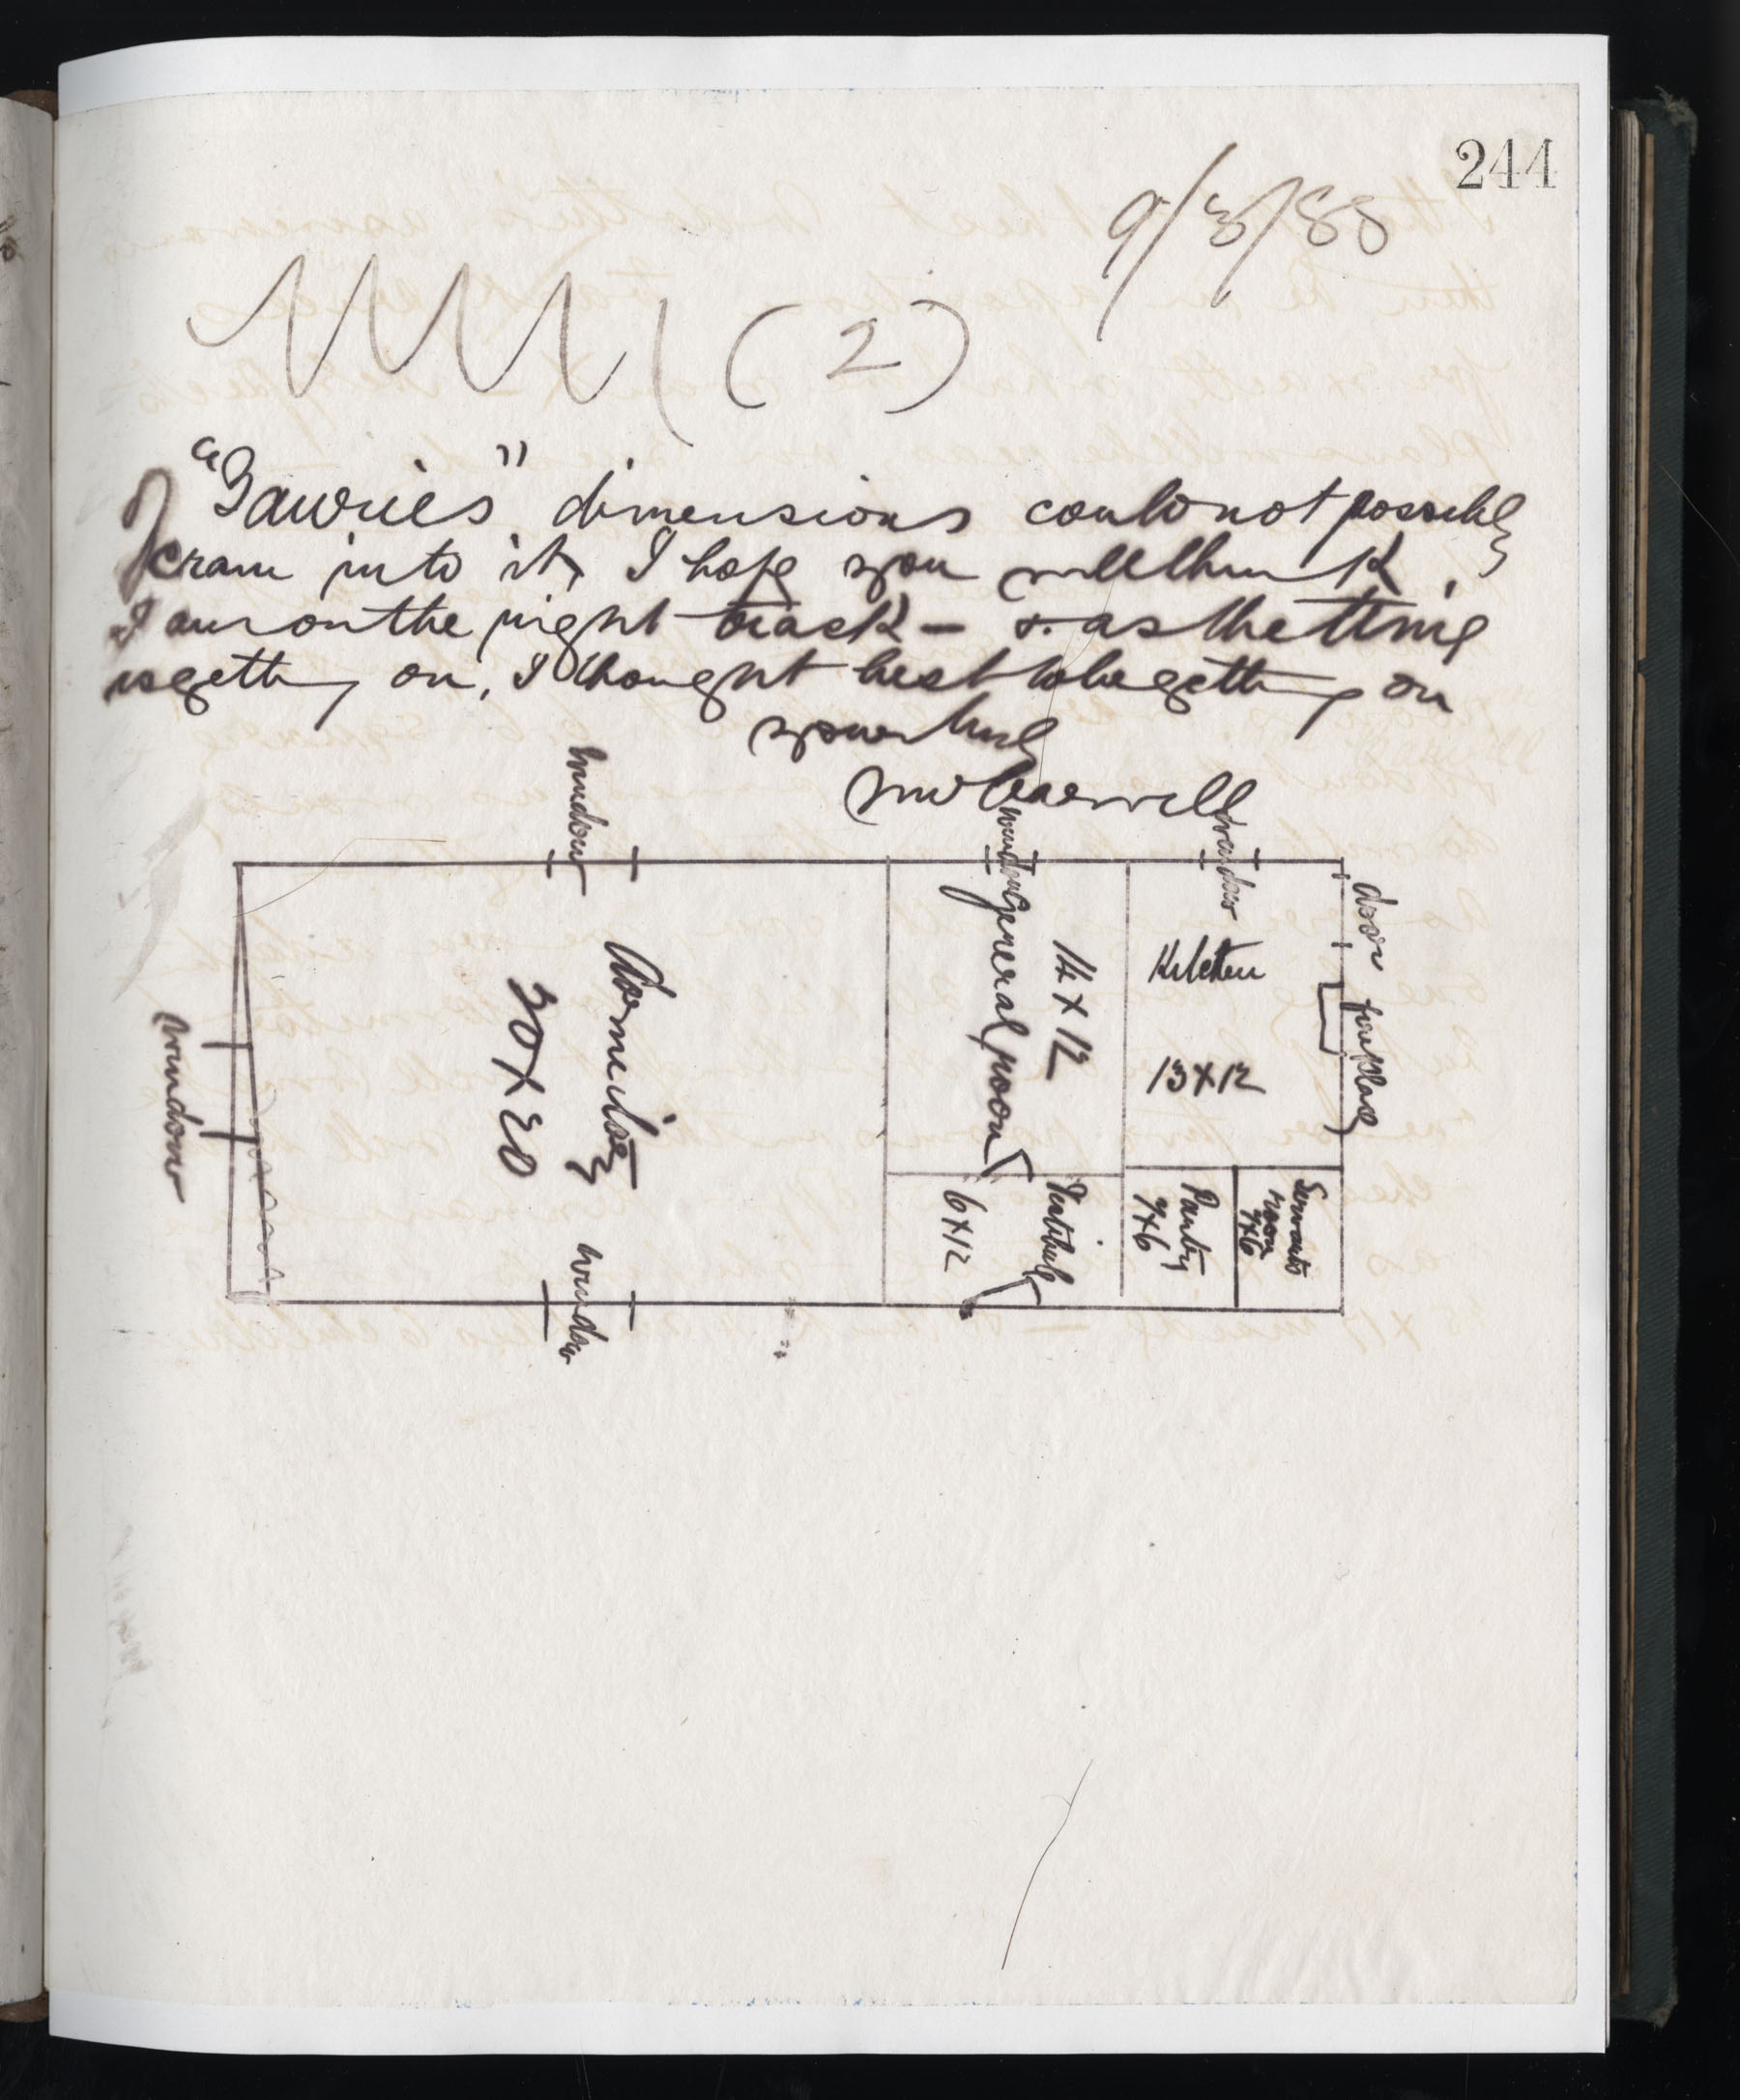 244
9/3/88
(2)
of "Gawries" dimensions could not possibly
cram into it, I hope you will think
I am on the right track — & as the time
is getting on, I thought best to be getting on
yours truly
window
window
window
door
fireplace
Kitchen
13 x 12
14 x 12
General room
Dormitory
30 x 20
window
window
Vestibule
6 x 12
Pantry
7x6
Servants
room
7x6